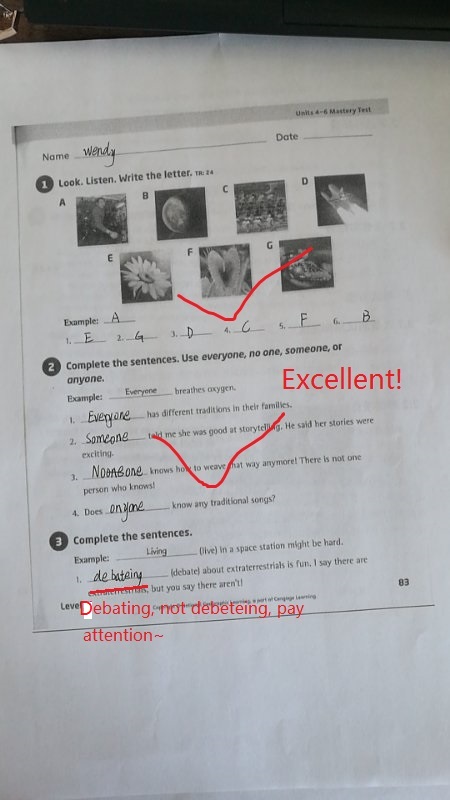 Units 4–6 Mastery Test
Name wendy Date
1 Look. Listen. Write the letter. TR: 24
A B C D
E F G
Example: A
1. E 2. G 3. D 4. C 5. F 6. B
2 Complete the sentences. Use everyone, no one, someone, or
anyone.
Excellent!
Example: Everyone breathes oxygen.
1. Everyone has different traditions in their families.
2. Someone told me she was good at storytelling. He said her stories were
exciting.
3. one knows how to weave that way anymore! There is not one
person who knows!
4. Does anyone know any traditional songs?
3 Complete the sentences.
Example: Living (live) in a space station might be hard.
1. debateing (debate) about extraterrestrials is fun. I say there are
extraterrestrials, but you say there aren't!
83
Level
a part of Cengage Learning
Debating, not debeteing, pay
attention~